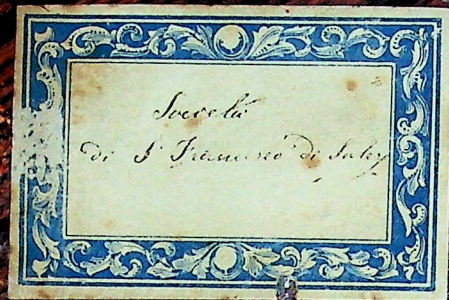 Società
di S Francesco di Sales